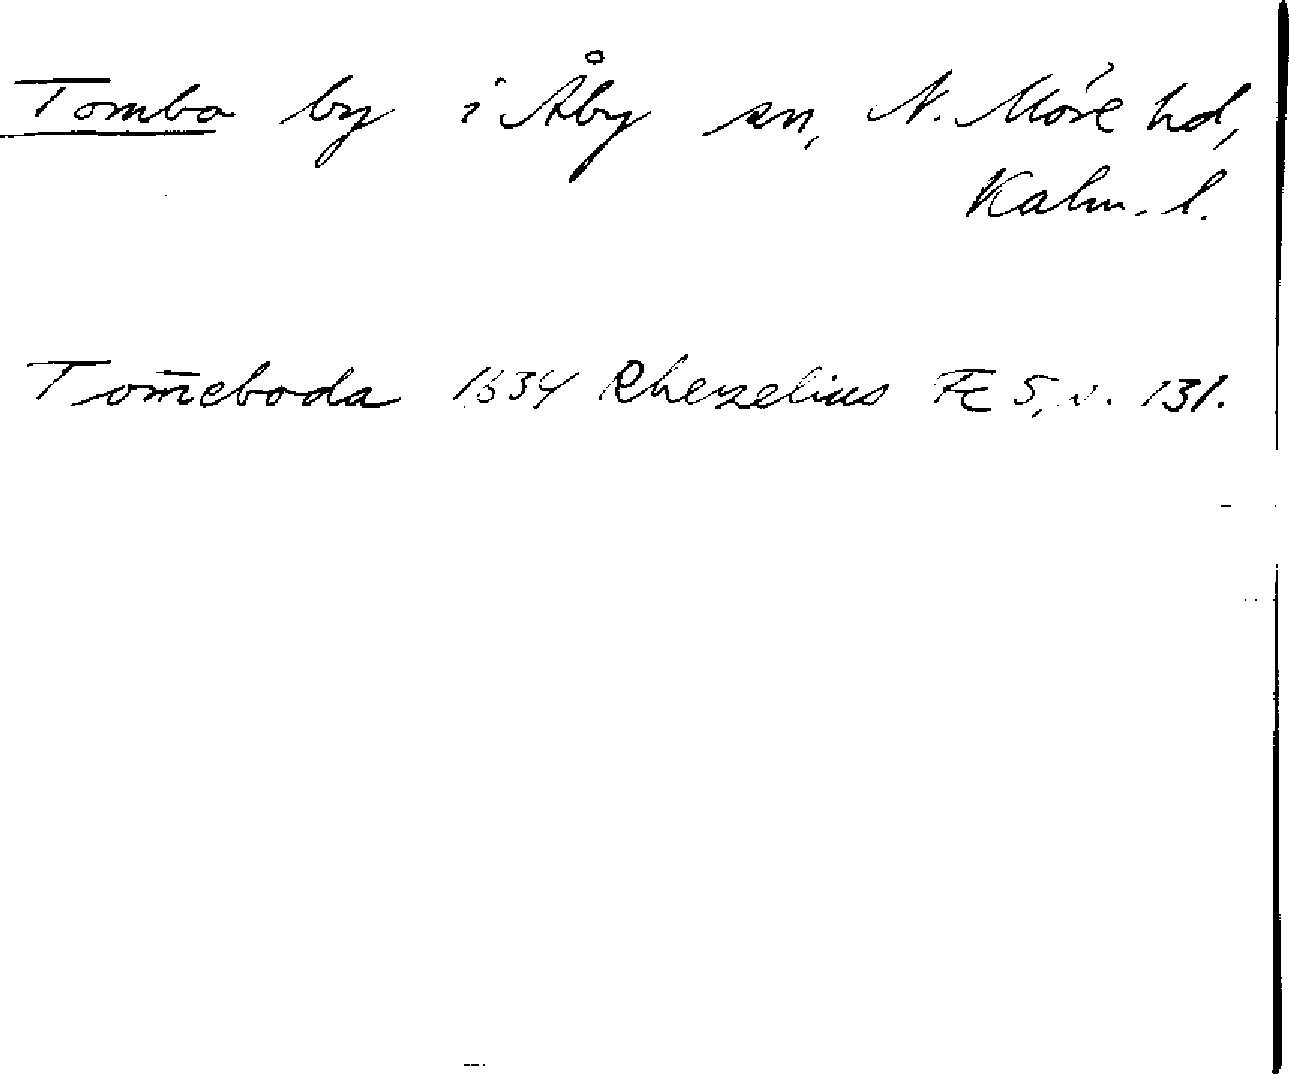 Tomba by i Åby sn, N. Möre hd,
Kalm. l.
Tom̄eboda 1634 Rhezelius Fc 5, s. 131.